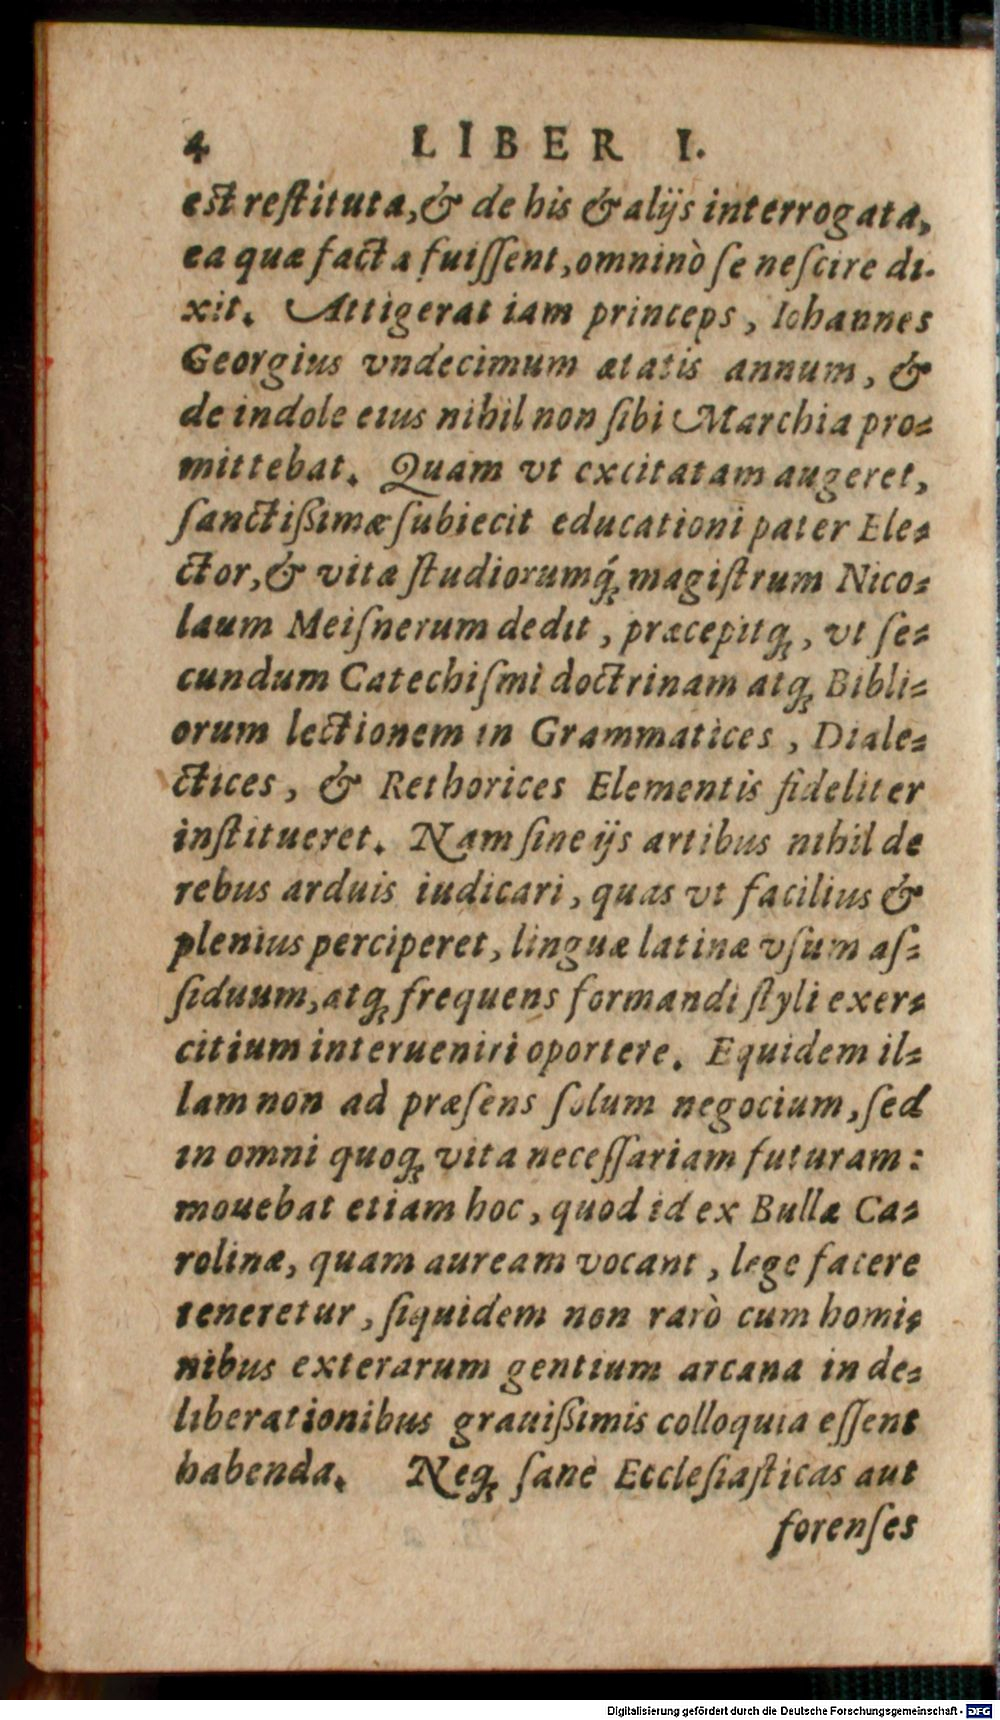 4 LIBER I.
est reſtituta, & de his & alijs interrogata,
ea quæ facta fuiſſent, omninò ſe neſcire di-
xit. Attigerat iam princeps, Iohannes
Georgius vndecimum ætatis annum, &
de indole eius nihil non ſibi Marchia pro-
mittebat. Quam vt excitatam augeret,
ſanctißimæ ſubiecit educationi pater Ele-
ctor, & vitæ ſtudiorumq́; magiſtrum Nico-
laum Meiſnerum dedit, præcepitq;, vt ſe-
cundum Catechiſmi doctrinam atq; Bibli-
orum lectionem in Grammatices, Diale-
ctices, & Rethorices Elementis fideliter
inſtitueret. Nam ſine ijs artibus nihil de
rebus arduis iudicari, quas vt facilius &
plenius perciperet, linguæ latinæ vſum aſ-
ſiduum, atq; frequens formandi ſtyli exer-
citium interueniri oportere. Equidem il-
lam non ad præſens ſolum negocium, ſed
in omni quoq; vita neceſſariam futuram:
mouebat etiam hoc, quod id ex Bulla Ca-
rolinæ, quam auream vocant, lege facere
teneretur, ſiquidem non rarò cum homi-
nibus exterarum gentium arcana in de-
liberationibus grauißimis colloquia eſſent
habenda. Neq; ſanè Eccleſiaſticas aut
forenſes
Digitalisierung gefördert durch die Deutsche Forschungsgemeinschaft - DFG